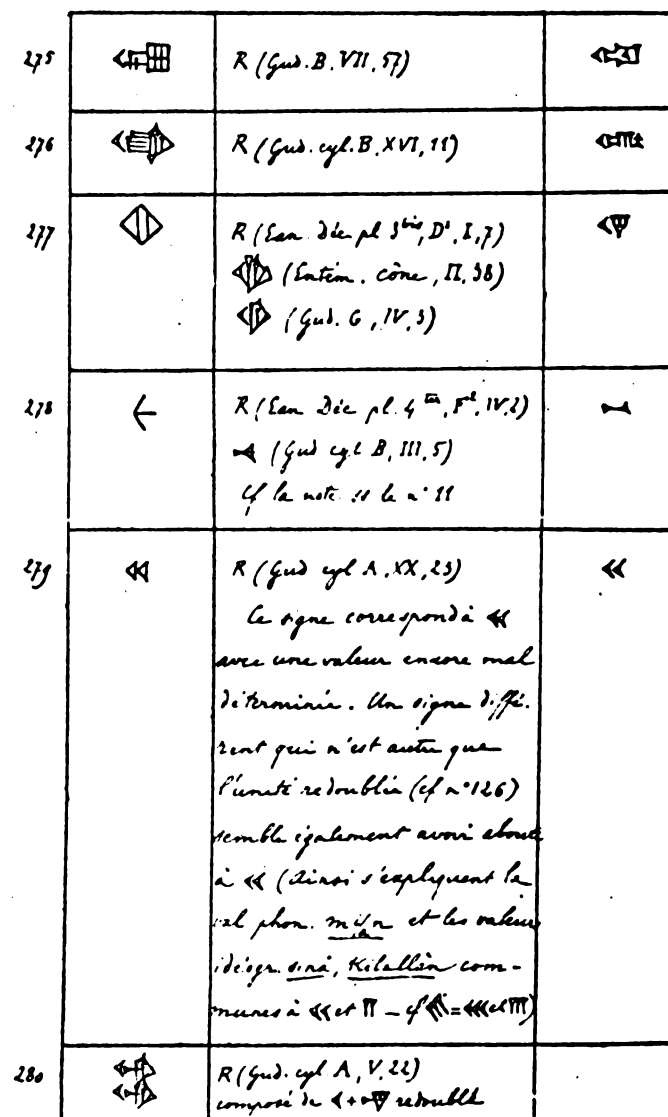 275 R (Gud. B. VII, 57)
276 R (Gud. cyl. B, XVI, 11)
277 R (Ean. Déc pl 3 bis, D¹, I, 7)
(Entém. cône, II, 38)
(Gud. G, IV, 3)
278 R (Ean Déc pl. 4 ter, F², IV, 2)
(Gud cyl B, III, 5)
Cf la note ss le n° 11
279 R (Gud cyl A, XX, 23)
Ce signe correspond à 𒎙
avec une valeur encore mal
déterminée. Un signe diffé-
rent qui n'est autre que
l'unité redoublée (cf n° 126)
semble également avoir abouti
à 𒎙 (Ainsi s'expliquent la
val phon. et les valeurs
idéogr. sinâ, Kilallân com-
munes à 𒎙 et 𒈫 – cf = 𒌍 et 𒐈)
280 R (Gud. cyl A, V, 22)
composé de 𒌋 + redoublé